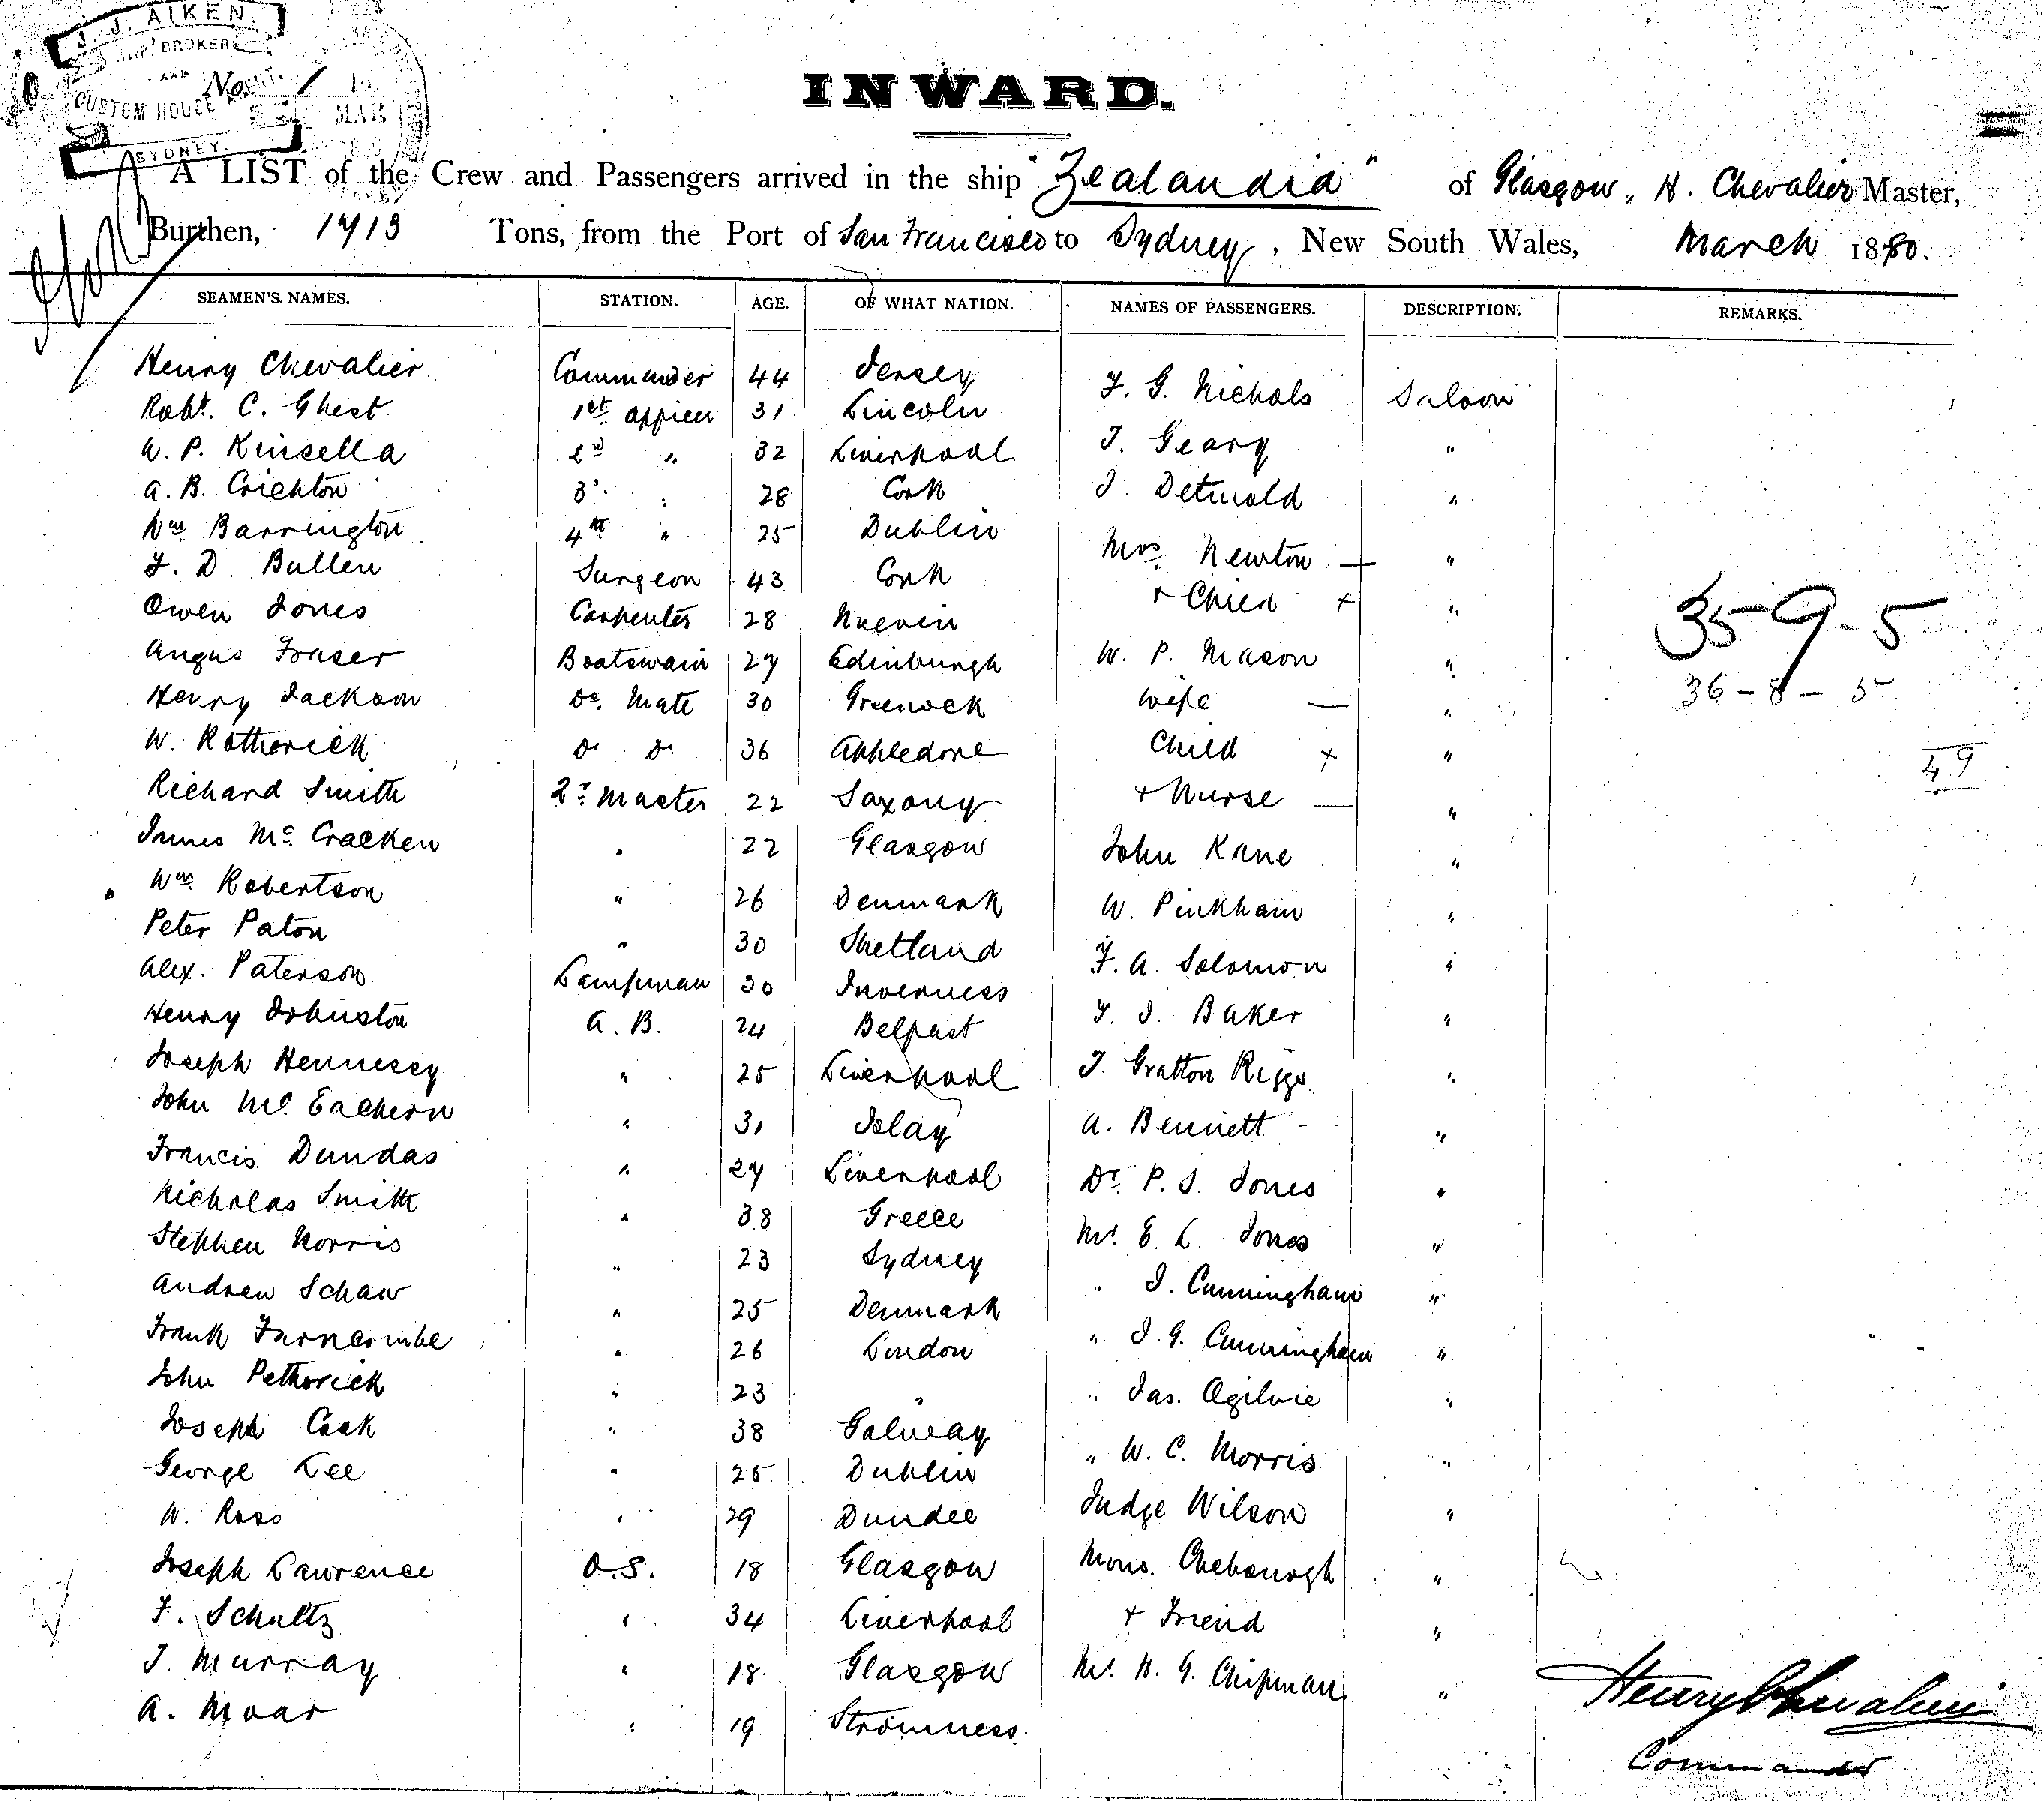 J. J. AIKEN.
BROKER
AND No. 1
CUSTOM HOUSE MAR
SYDNEY.
INWARD.
A LIST of the Crew and Passengers arrived in the ship "Zealandia" of Glasgow, H. Chevalier Master,
Burthen, 1413 Tons, from the Port of San Francisco to Sydney, New South Wales, March 1880.
SEAMEN'S NAMES. STATION. AGE. OF WHAT NATION. NAMES OF PASSENGERS. DESCRIPTION. REMARKS.
Henry Chevalier Commander 44 Jersey F. G. Nichols Saloon
Robt. C. Ghest 1st officer 31 Lincoln T. Geary "
W. P. Kinsella 2d " 32 Liverpool J. Detmold "
A. B. Crichton 3d " 28 Cork Mrs. Newton — "
Wm Barrington 4th " 25 Dublin + Child + "
F. D. Bullen Surgeon 43 Cork W. P. Mason "
Owen Jones Carpenter 28 Nevin wife — "
Angus Fraser Boatswain 27 Edinburgh Child + "
Henry Jackson Do. Mate 30 Greenock + Nurse — "
W. Rotherick Do Do 36 Appledore John Kane "
Richard Smith 2r Master 22 Saxony W. Pinkham "
James McCracken " 22 Glasgow F. A. Solomon "
Wm Robertson " 26 Denmark F. J. Baker "
Peter Paton " 30 Shetland T. Gratton Riggs "
Alex. Paterson Lampman 30 Inverness A. Bennett "
Henry Johnston A. B. 24 Belfast Dr. P. S. Jones "
Joseph Hennesey " 25 Liverpool Mr. E. L. Jones "
John McEachern " 31 Islay " J. Cunningham "
Francis Dundas " 27 Liverpool " J. G. Cunningham "
Nicholas Smith " 38 Greece " Jas. Ogilvie "
Stephen Norris " 23 Sydney " W. C. Morris "
Andrew Schaw " 25 Denmark Judge Wilson "
Frank Furncombe " 26 London Mons. "
John Petherick " 23 " + Friend "
Joseph Cook " 38 Galway Mr. H. G. Chipman "
George Lee " 25 Dublin
W. Ross " 29 Dundee
Joseph Lawrence O.S. 18 Glasgow
F. Schultz " 34 Liverpool
J. Murray " 18 Glasgow
A. Moar " 19 Stromness
35-9-5
36-8-5
49
Henry Chevalier
Commander